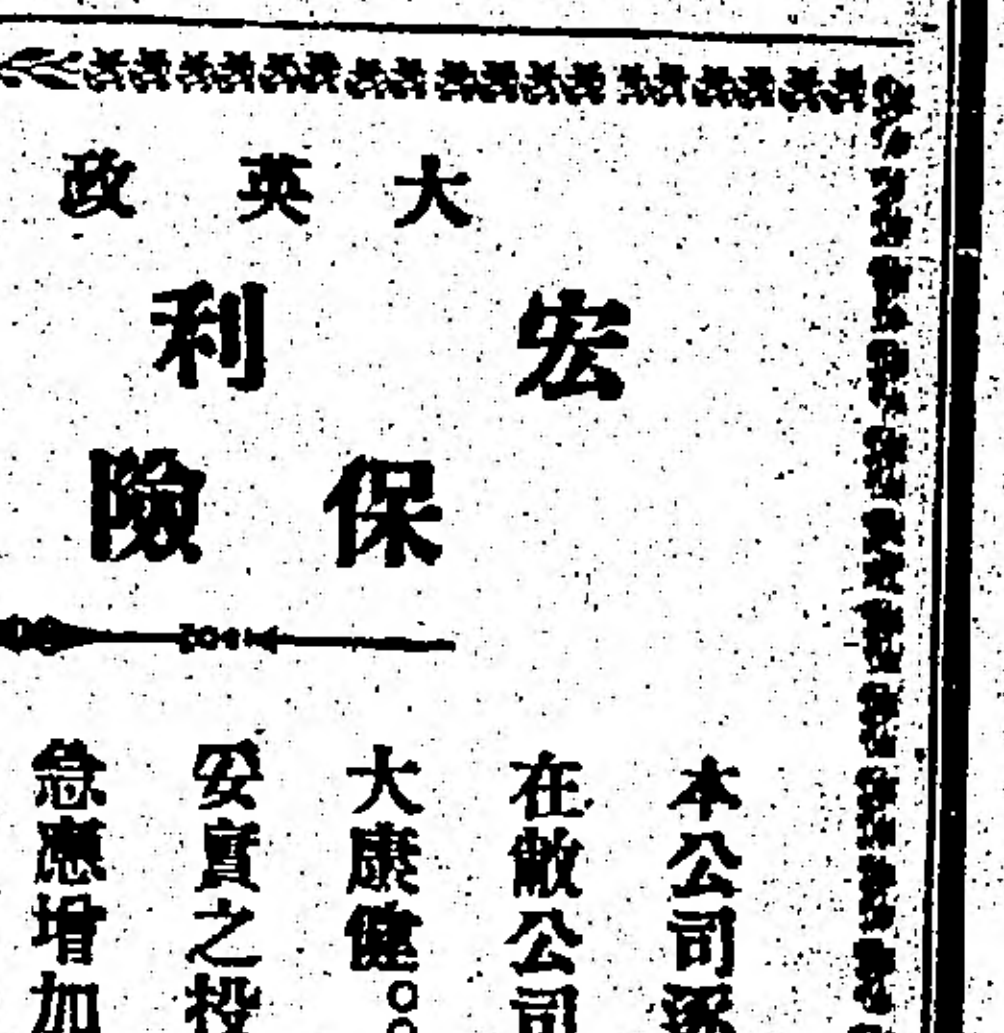 大英政
宏利
保險
本公司逐
在敝公司
大康健。。
妥實之投
急應增加